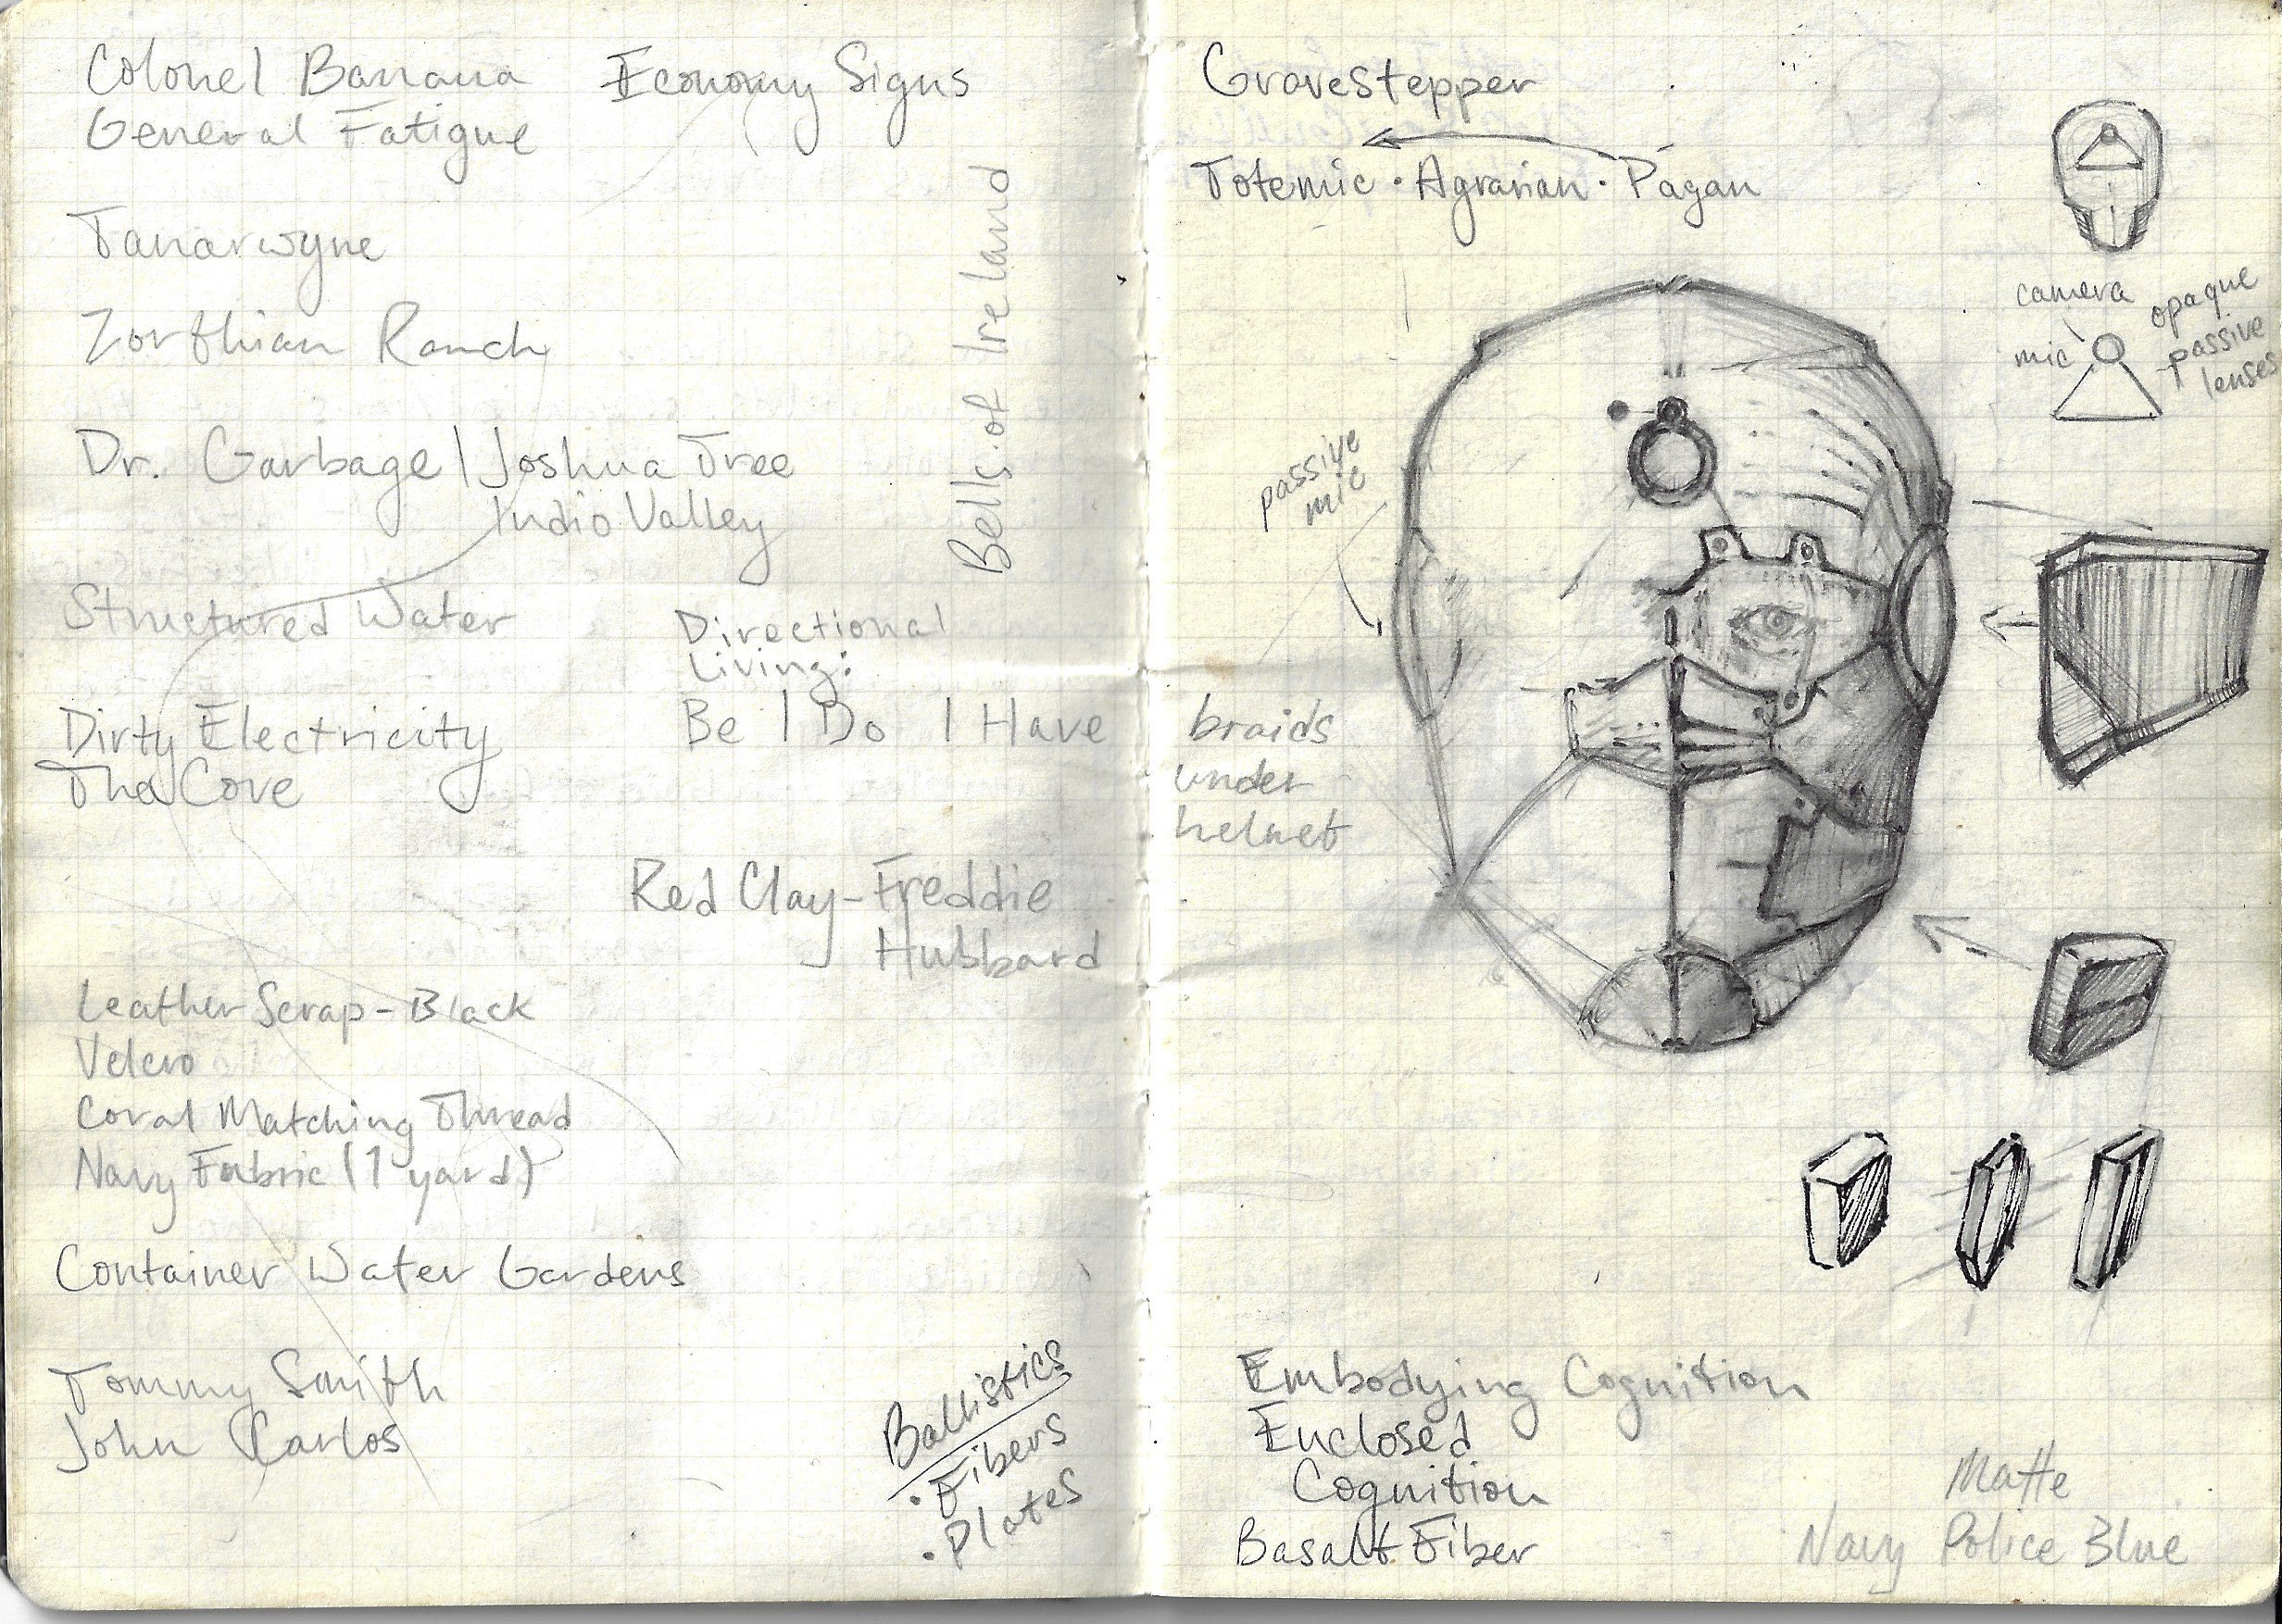 Colonel Banana
General Fatigue
Economy Signs
Tanarwyne
Zorthian Ranch
Bells of Ireland
Dr. Garbage | Joshua Tree
Indio Valley
Structured Water
Directional
Living:
Be | Do | Have
Dirty Electricity
The Cove
Red Clay - Freddie
Hubbard
Leather Scrap - Black
Velcro
Coral Matching Thread
Navy Fabric (1 yard)
Container Water Gardens
Tommy Smith
John Carlos
Ballistics
• Fibers
• Plates
Gravestepper
Totemic • Agrarian • Pagan
camera
mic
opaque
passive
lenses
passive
mic
braids
under
helmet
Embodying Cognition
Enclosed
Cognition
Basalt Fiber
Matte
Navy Police Blue